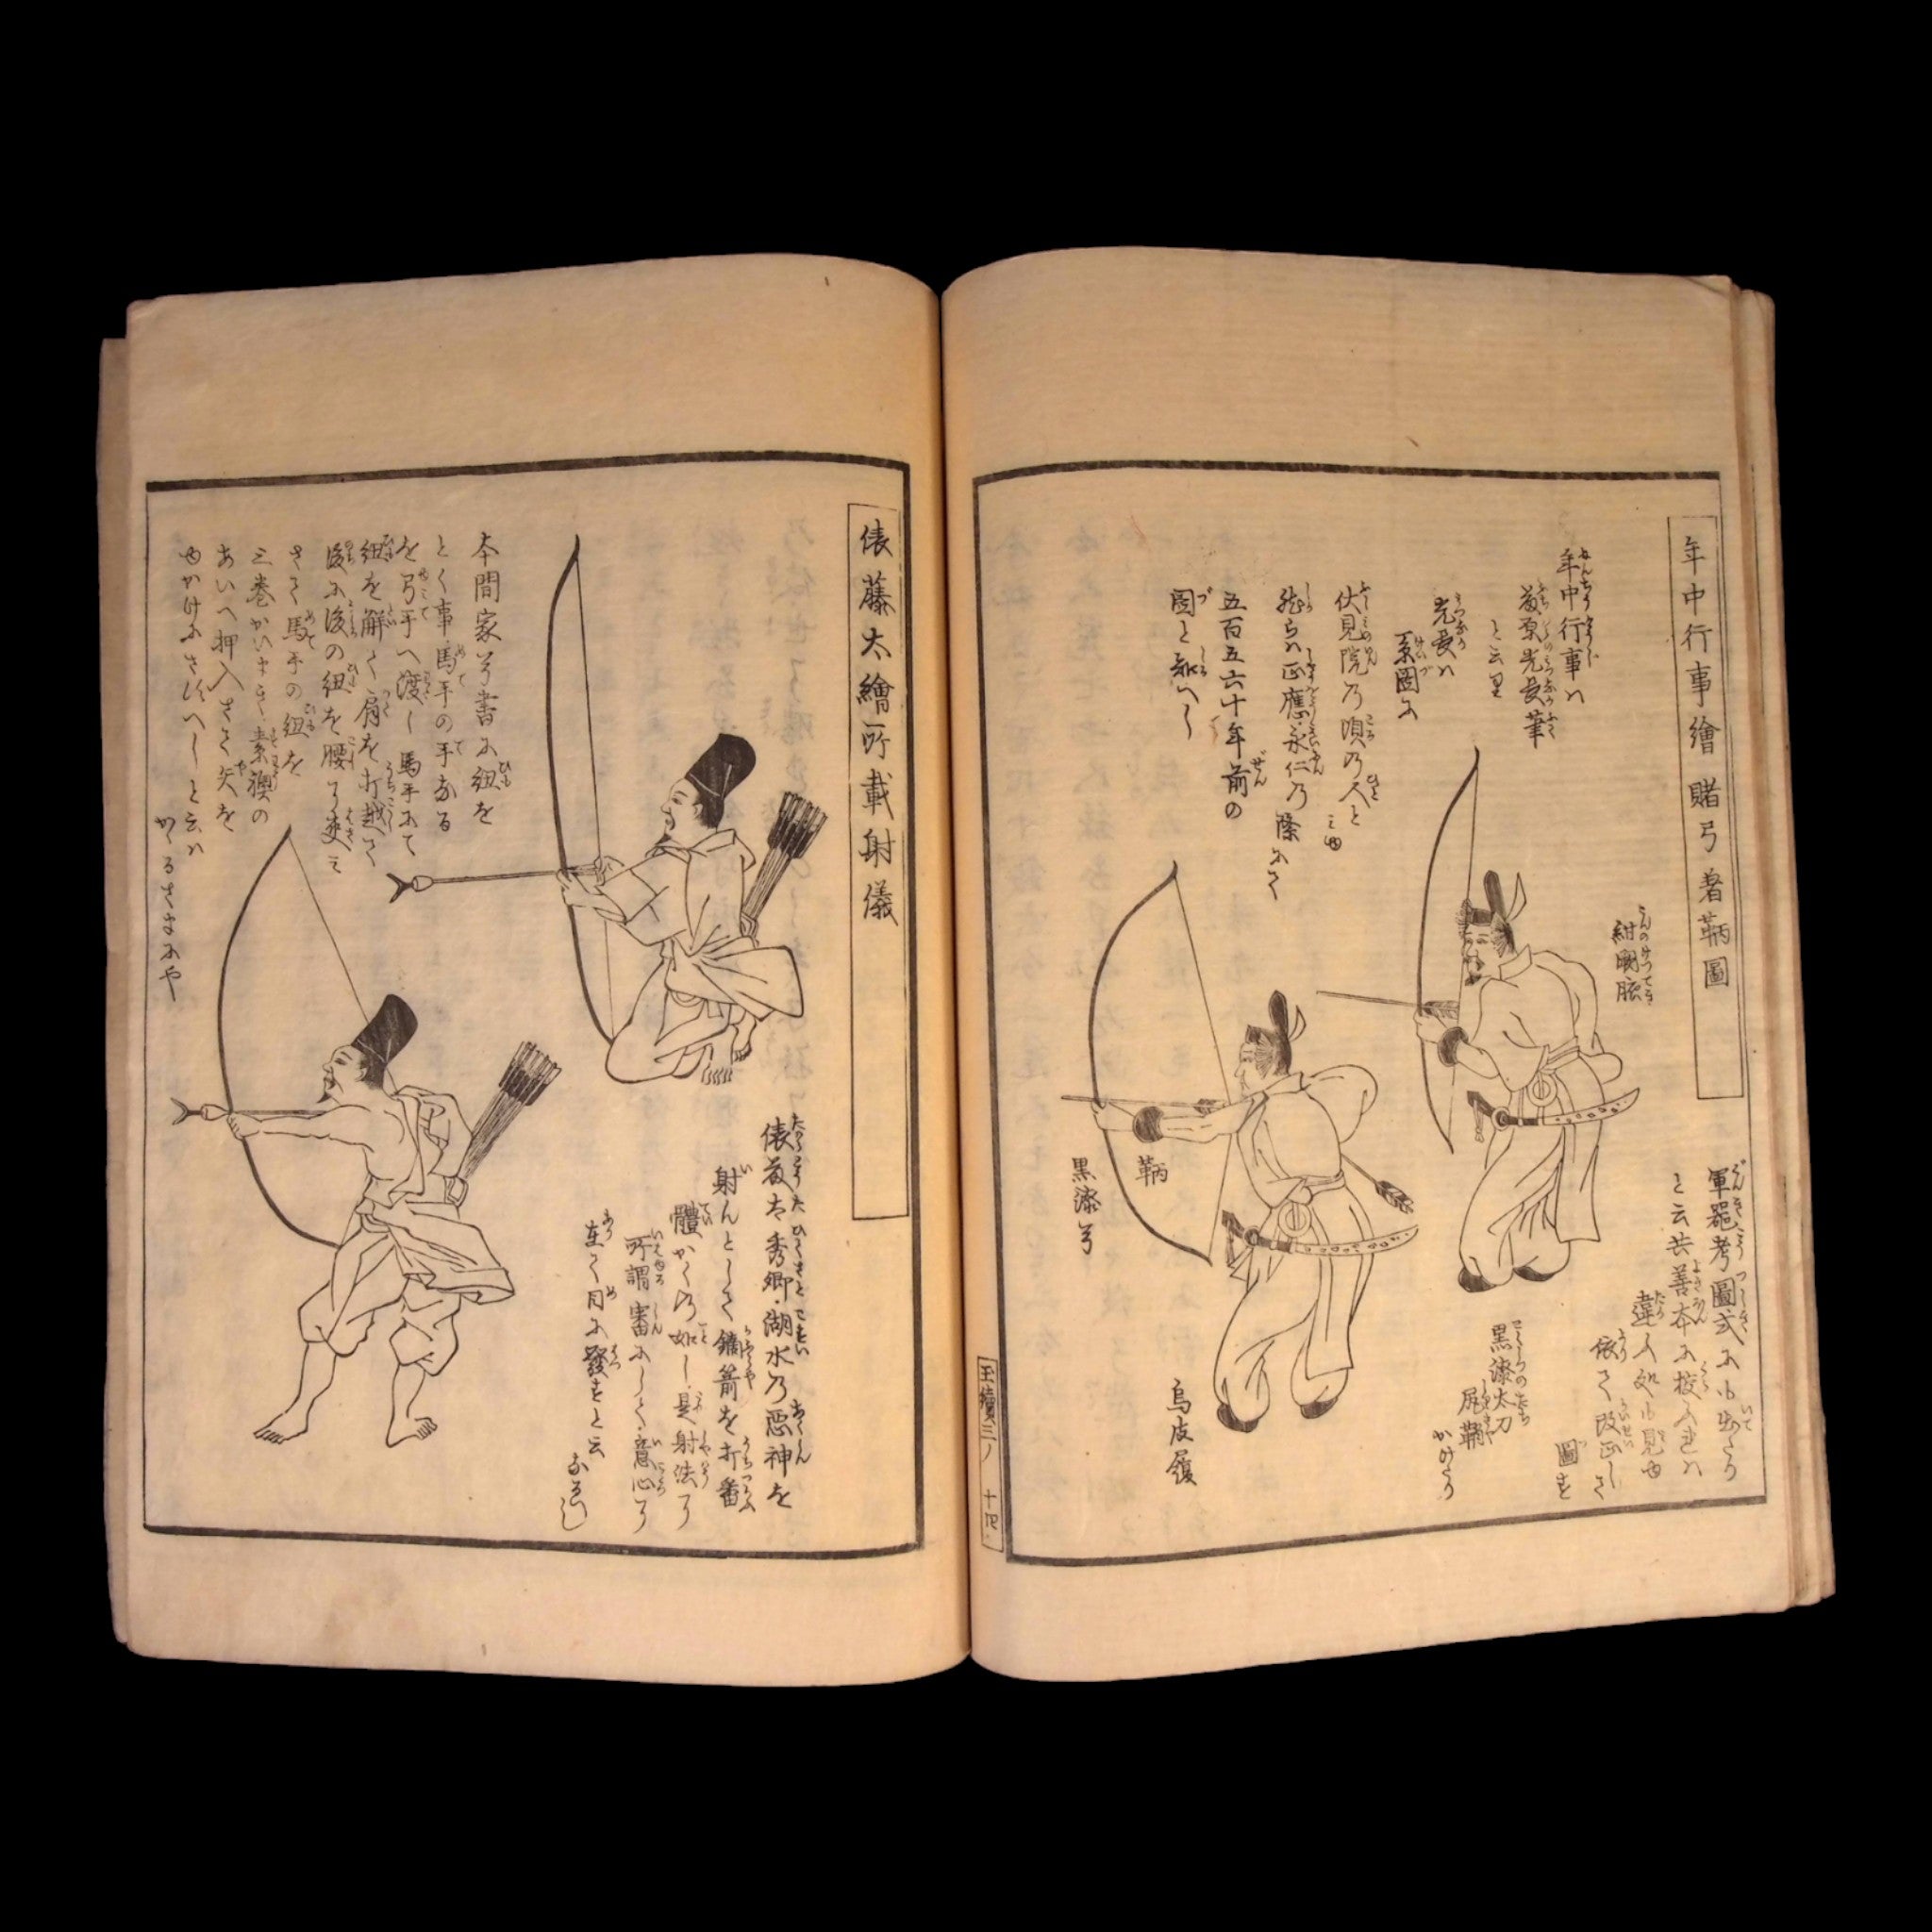 年中行事繪賭弓著鞆圖
軍器考圖式にも出たり
と云共善本に校入れハ
違へ処も見ゆ
依て改正して
圖を
年中行事ハ
藤原光長筆
と云里
光長ハ
系圖に
伏見院乃頃乃人と
みゆ
然らハ正應永仁乃際にて
五百五六十年前の
圖と知へし
紺
黒漆太刀
尻鞘
かけたり
鞆
黒漆弓
烏皮履
玉襷三ノ 十四
俵藤太繪所載射儀
俵藤太秀郷湖水乃惡神を
射んとして鏑箭を打番
體かくの如し是射法に
所謂審にして意心に
在て目に發すと云
なるへし
本間家弓書に紐を
とく事馬手の手なる
を弓手へ渡し馬手にて
紐を解く肩を打越て
後に後の紐を腰に挾ミ
さて馬手の紐を
三巻かいまき素襖の
あいへ押入さて矢を
ゆかけにさすへしと云ハ
かゝるさまにや